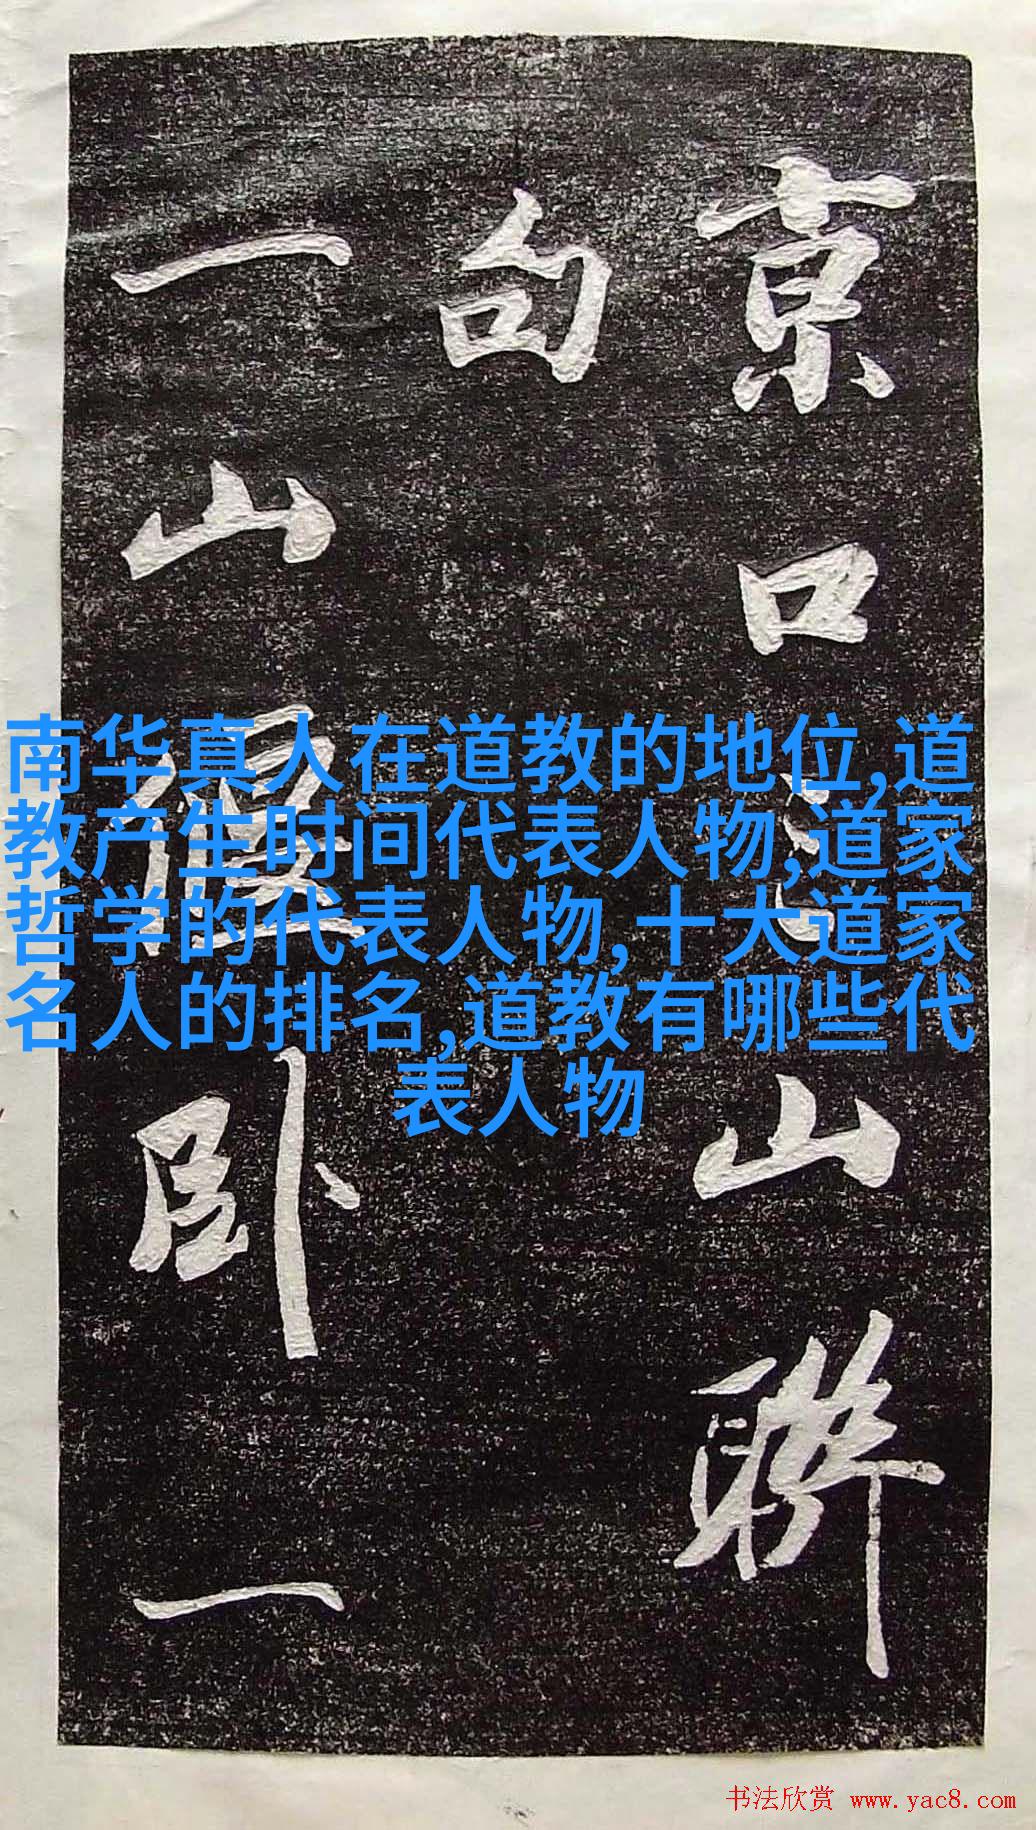 京口山聯
句
一山偃卧一
南华真人在道教的地位,道
教产生时间代表人物,道家
哲学的代表人物,十大道家
名人的排名,道教有哪些代
表人物
书法欣赏 www.yac8.com